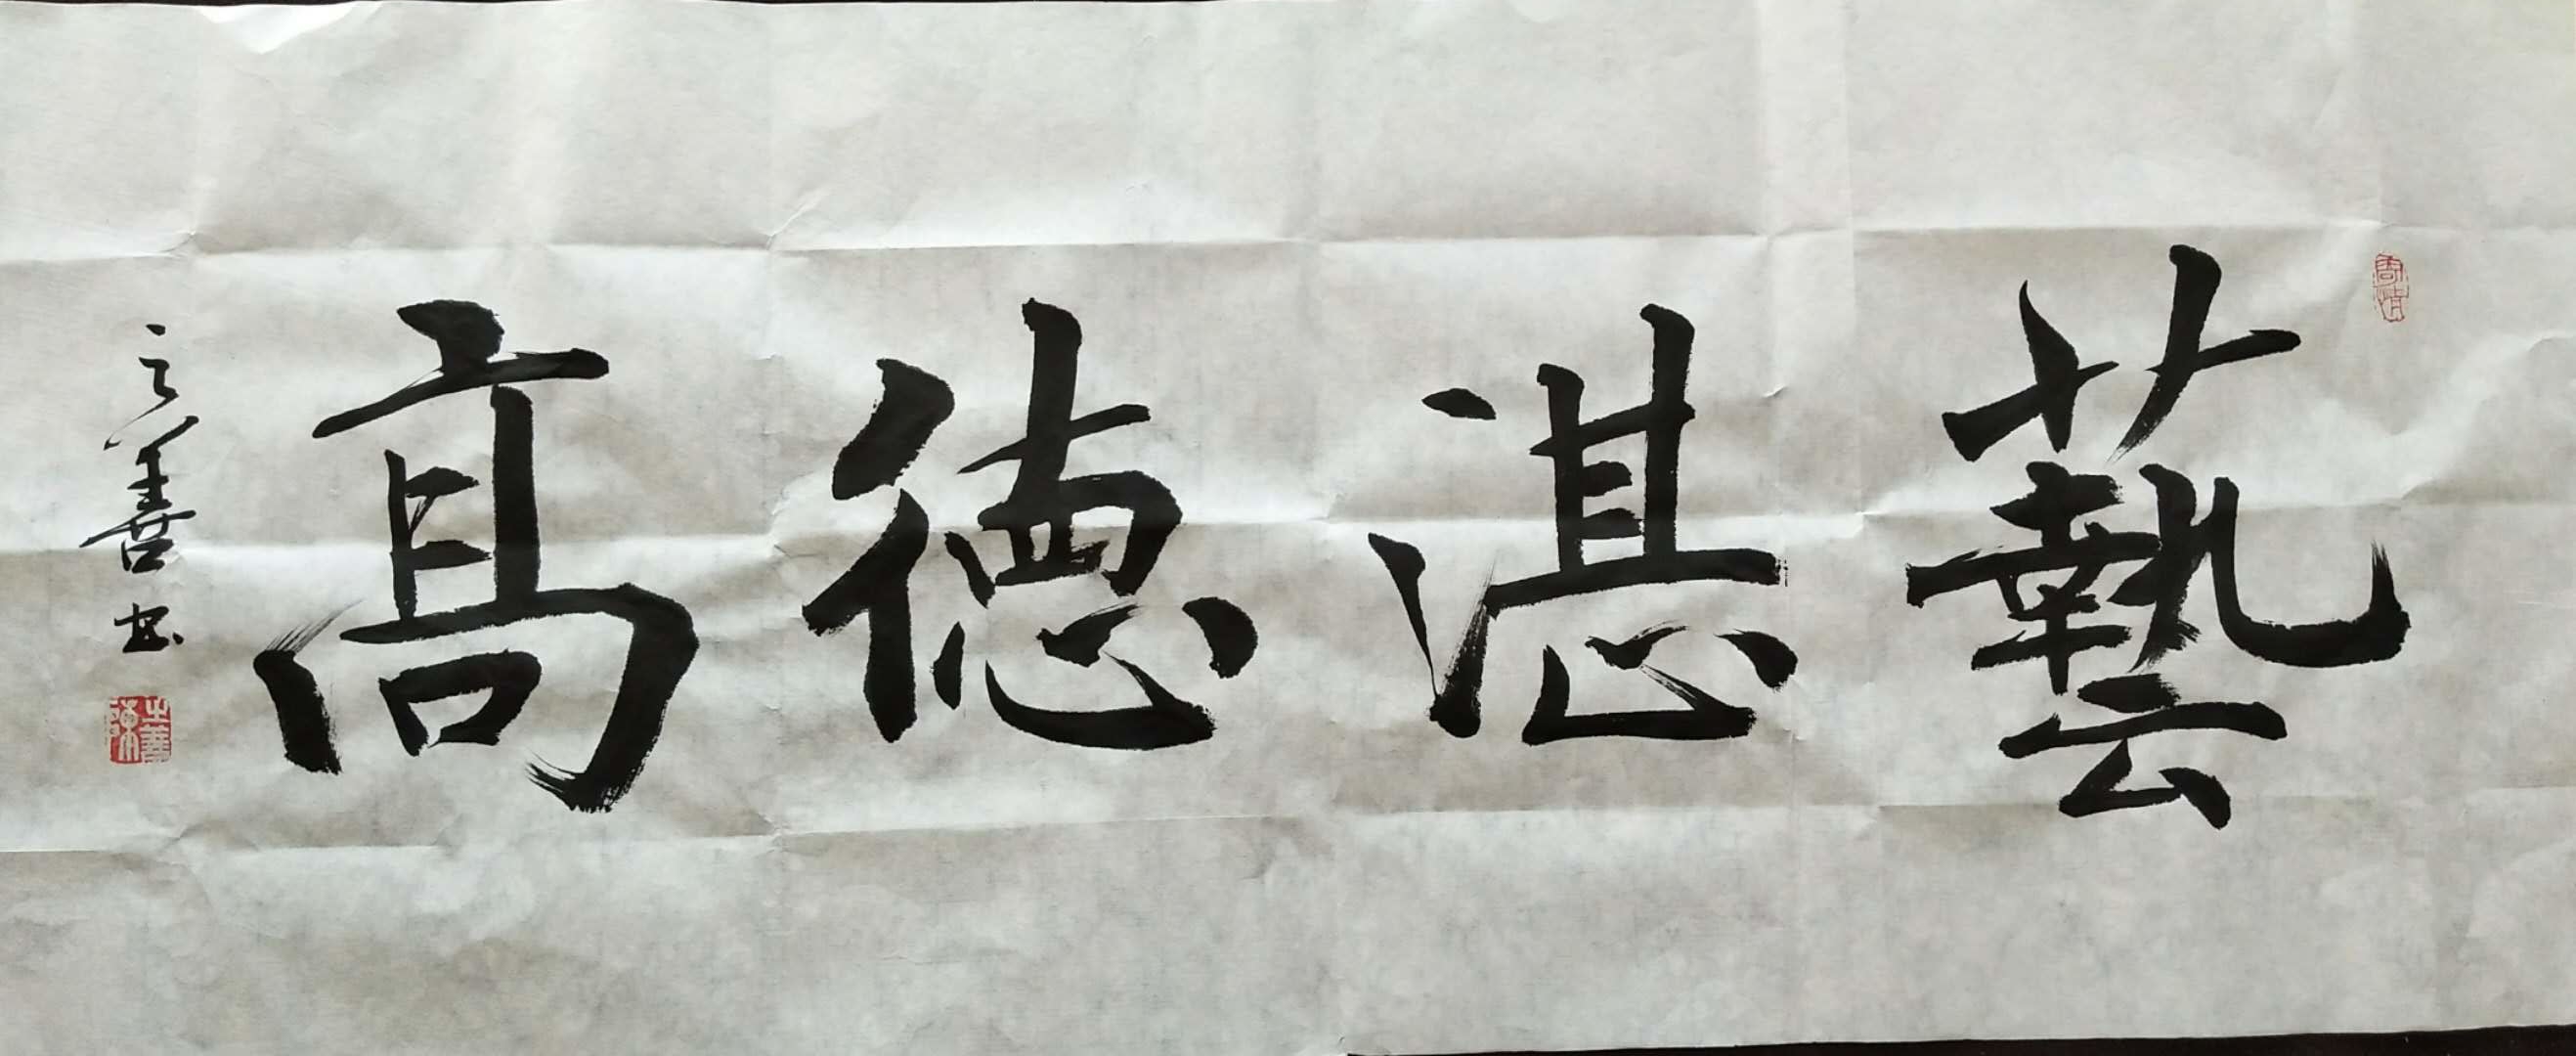 藝湛德高
之善书